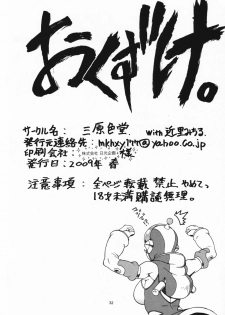 おくずけ。
サークル名： 三原色堂 with 近里みちる
発行元連絡先： @yahoo.co.jp
印刷会社： 株式会社 日光企画 様
発行日：2009年 春
注意事項： 全ページ転載禁止やめて。
18才未満購読無理。
32